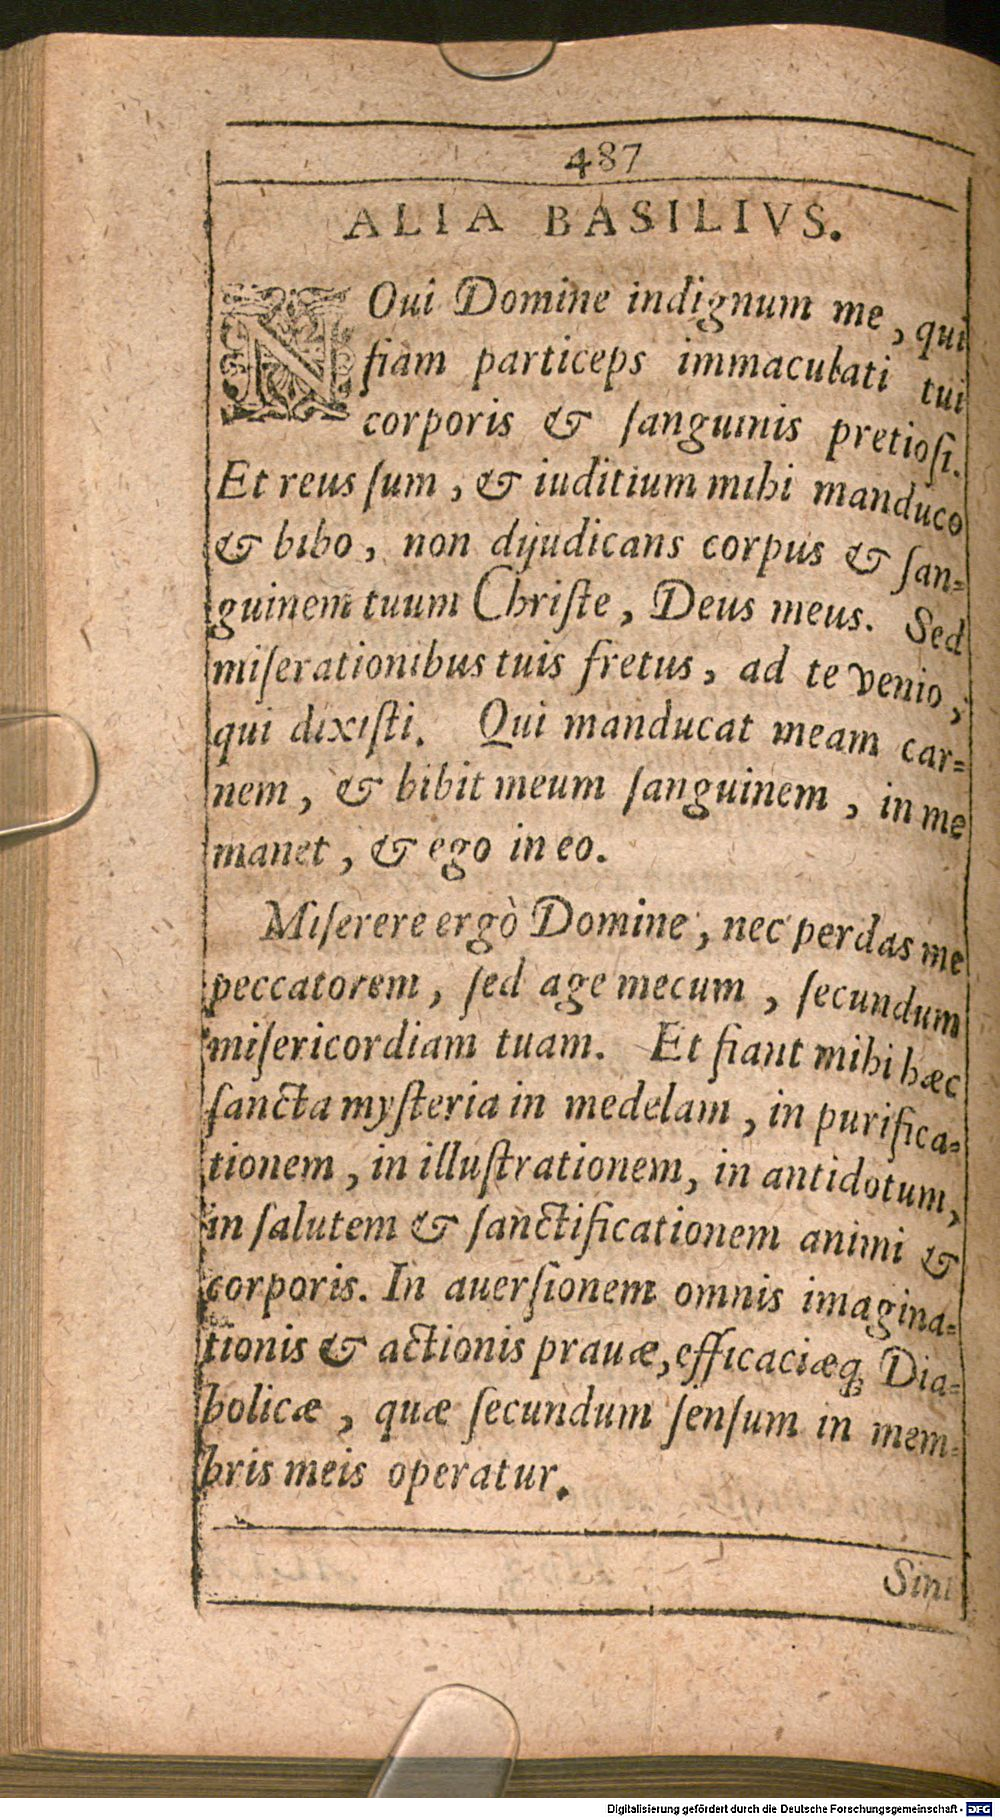 487
ALIA BASILIVS.
NOui Domine indignum me, qui
fiam particeps immaculati tui
corporis & ſanguinis pretioſi.
Et reus ſum, & iuditium mihi manduco
& bibo, non dijudicans corpus & ſan-
guinem tuum Chriſte, Deus meus. Sed
miſerationibus tuis fretus, ad te venio,
qui dixiſti. Qui manducat meam car-
nem, & bibit meum ſanguinem, in me
manet, & ego in eo.
Miſerere ergò Domine, nec perdas me
peccatorem, ſed age mecum, ſecundum
miſericordiam tuam. Et fiant mihi hæc
ſancta myſteria in medelam, in purifica-
tionem, in illuſtrationem, in antidotum,
in ſalutem & ſanctificationem animi &
corporis. In auerſionem omnis imagina-
tionis & actionis prauæ, efficaciæq́; Dia-
bolicæ, quæ ſecundum ſenſum in mem-
bris meis operatur.
Sint
Digitalisierung gefördert durch die Deutsche Forschungsgemeinschaft - DFG